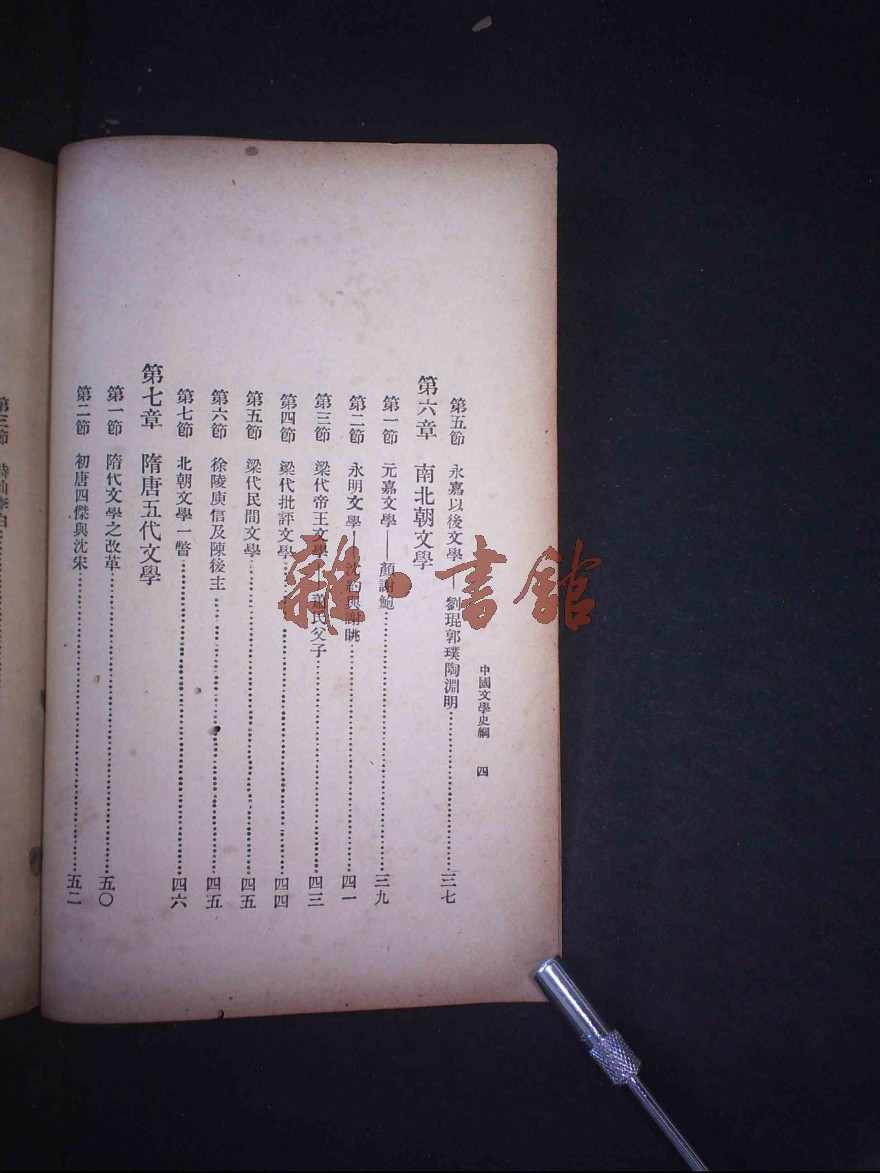 中國文學史綱 四
第五節 永嘉以後文學——劉琨郭璞陶淵明……三七
第六章 南北朝文學
第一節 元嘉文學——顏謝鮑……三九
第二節 永明文學——沈約與謝眺……四一
第三節 梁代帝王文學——蕭氏父子……四三
第四節 梁代批評文學……四四
第五節 梁代民間文學……四五
第六節 徐陵庾信及陳後主……四五
第七節 北朝文學一瞥……四六
第七章 隋唐五代文學
第一節 隋代文學之改革……五〇
第二節 初唐四傑與沈宋……五二
第三節
雜·書館